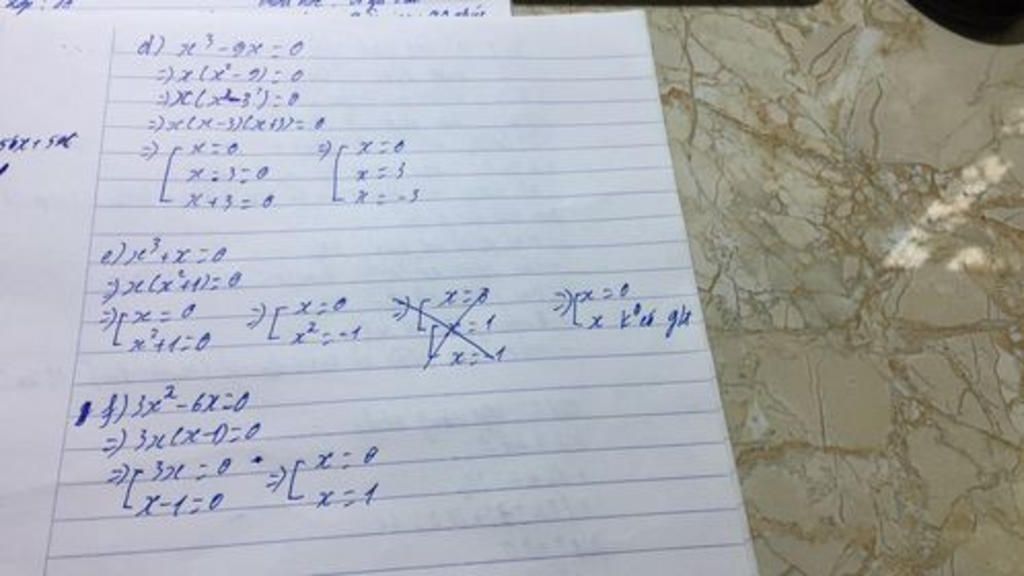 d) x³ - 9x = 0
=> x(x² - 9) = 0
=> x(x² - 3²) = 0
=> x(x-3)(x+3) = 0
=> [ x = 0 => [ x = 0
x - 3 = 0 x = 3
x + 3 = 0 x = -3
e) x³ + x = 0
=> x(x²+1) = 0
=> [ x = 0 => [ x = 0 => [ x = 0 => [ x = 0
x²+1 = 0 x² = -1 x = 1 x k° có gtr
x = -1
f) 3x² - 6x = 0
=> 3x(x-1) = 0
=> [ 3x = 0 => [ x = 0
x - 1 = 0 x = 1